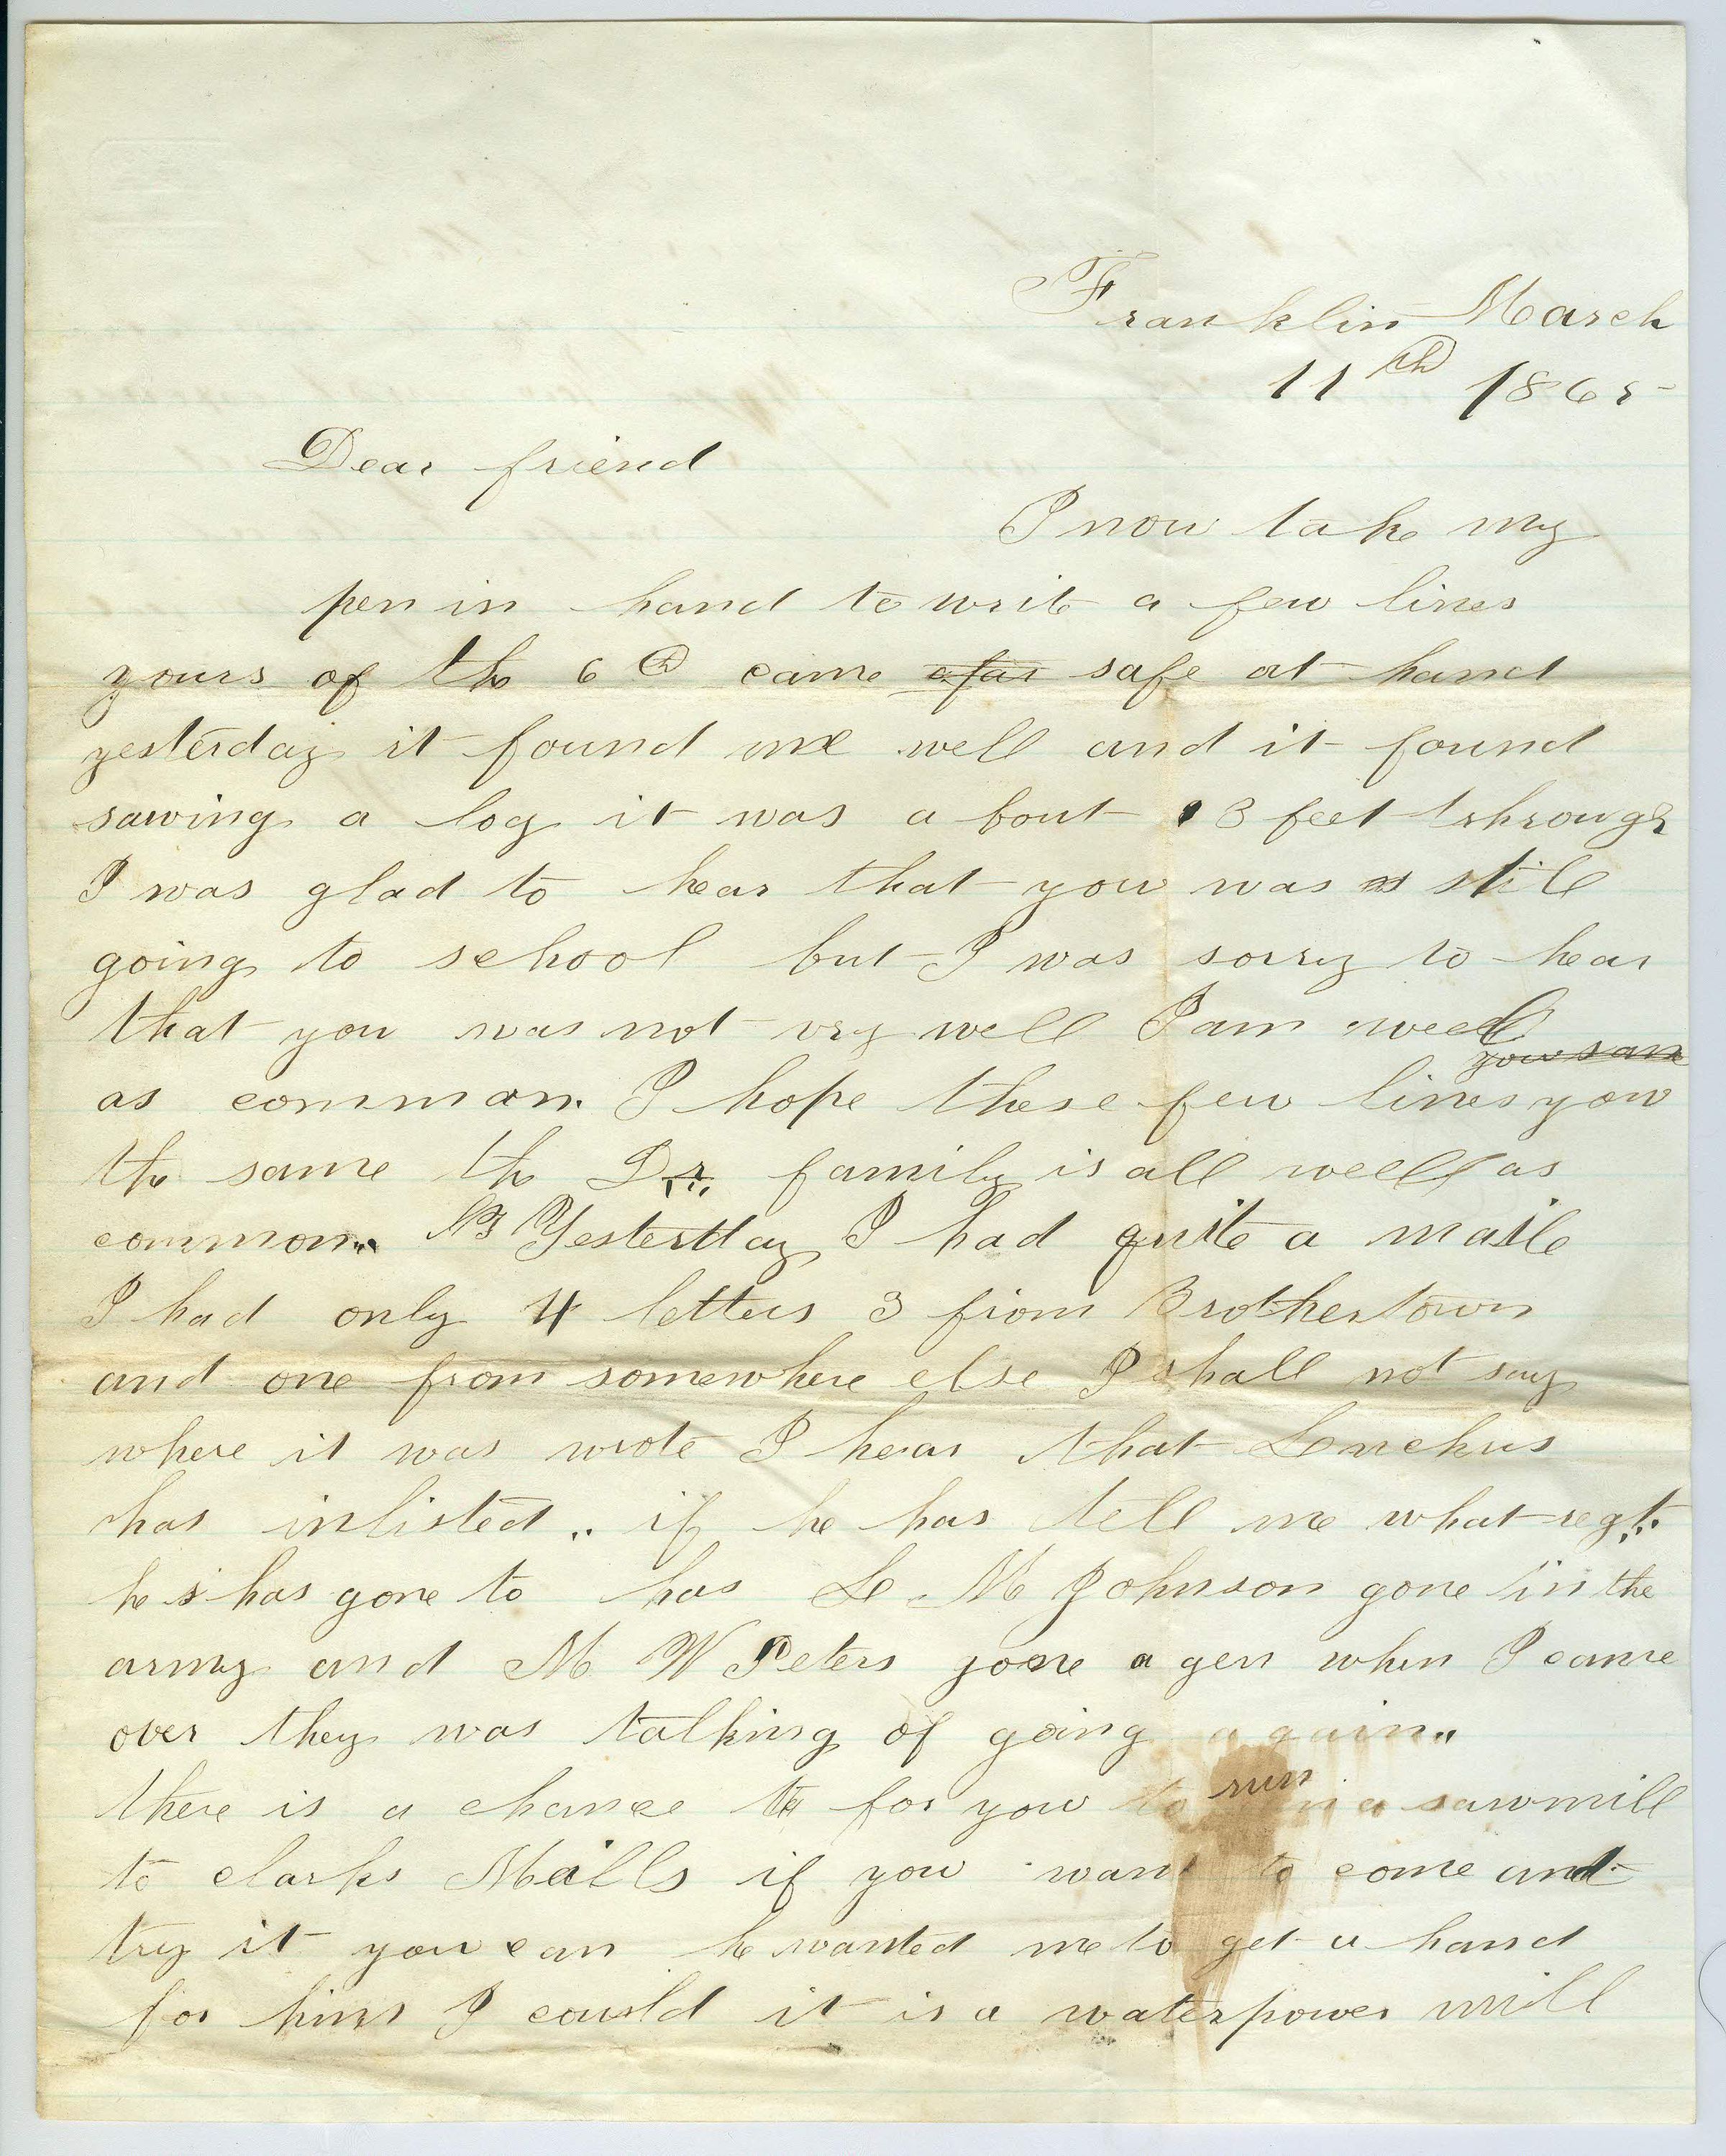 Franklin March
11th 1865
Dear friend
I now take my
pen in hand to write a few lines
yours of the 6th came safe at hand
yesterday it found me well and it found
sawing a log it was a bout 3 feet through
I was glad to hear that you was still
going to school but I was sorry to hear
that you was not vry well I am weell
as common. I hope these few lines you
the same the Dr. family is all weell as
common. Yesterday I had quite a maile
I had only 4 letters 3 from Brothertown
and one from somewhere else I shall not say
where it was wrote I hear that
has inlisted .. if he has tell me what regt.
he has gone to has L M Johnson gone in the
army and M W Peters gone a gen when I came
over they was talking of going again..
there is a chance for you to run in a sawmill
to clarks Mills if you want to come and
try it you can he wanted me to get a hand
for him I could it is a waterpower mill